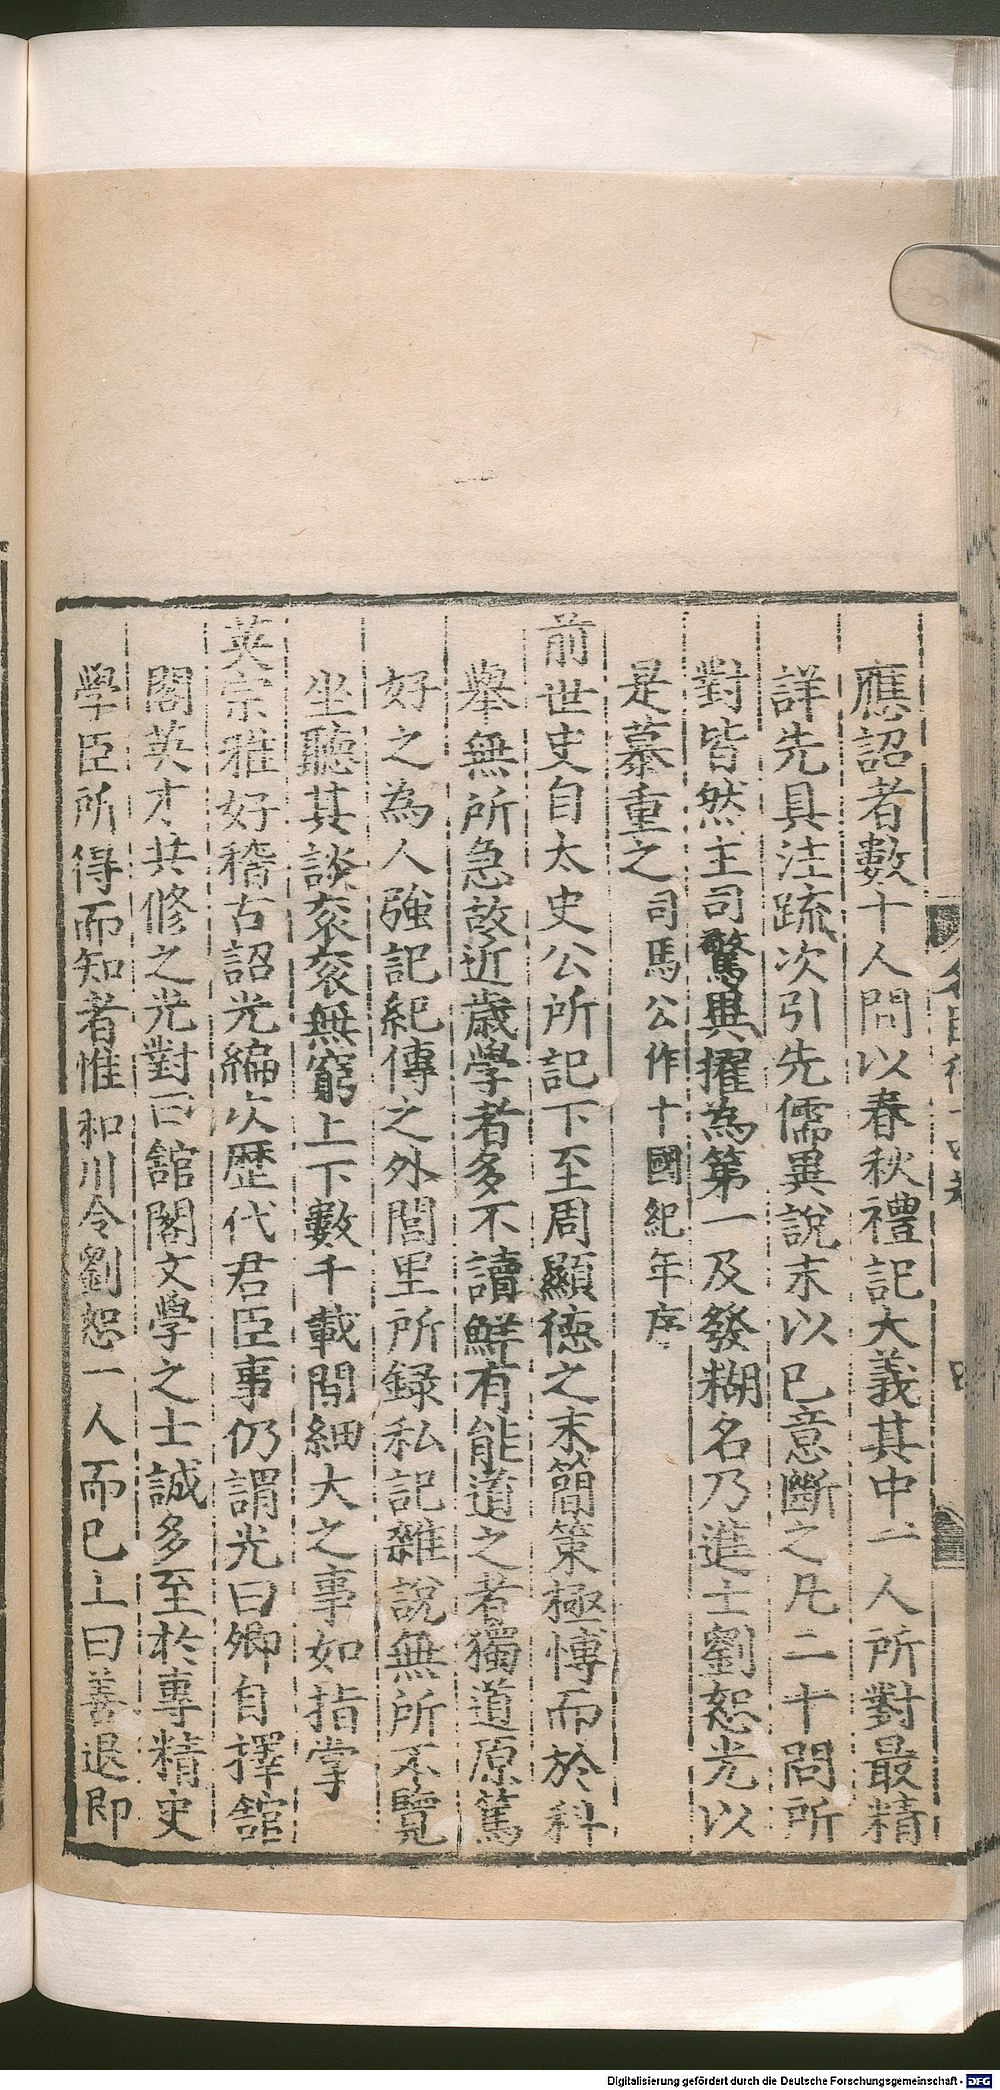 應詔者數十人問以春秋禮記大義其中二人所對最精
詳先具注疏次引先儒異說末以已意斷之凡二十問所
對皆然主司驚異擢為第一及發糊名乃進士劉恕光以
是慕重之 司馬公作十國紀年序
前世史自太史公所記下至周顯德之末簡策極愽而於科
舉無所急故近歲學者多不讀鮮有能道之者獨道原篤
好之為人強記紀傳之外閭里所録私記雜說無所不覽
坐聽其談衮衮無窮上下數千載間細大之事如指掌
英宗雅好稽古詔光編次歷代君臣事仍謂光曰卿自擇舘
閣英才共修之光對曰舘閣文學之士誠多至於專精史
學臣所得而知者惟和川令劉恕一人而已上曰善退即
Digitalisierung gefördert durch die Deutsche Forschungsgemeinschaft - DFG